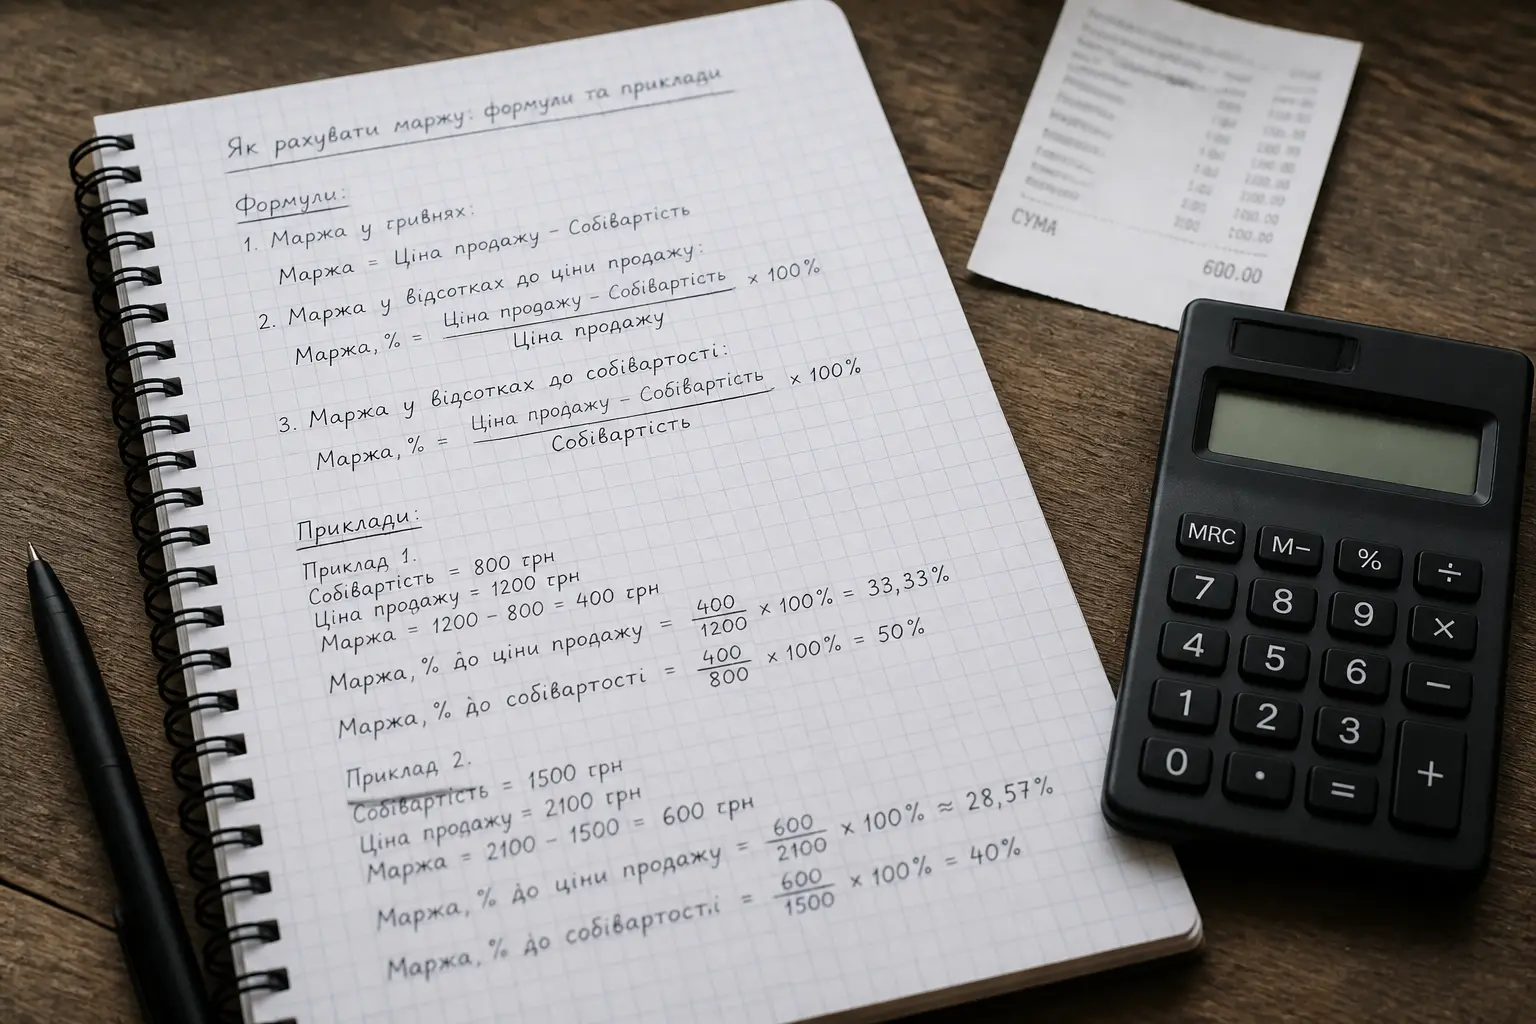 Як рахувати маржу: формули та приклади
Формули:
1. Маржа у гривнях:
Маржа = Ціна продажу – Собівартість
2. Маржа у відсотках до ціни продажу:
Маржа, % = Ціна продажу – Собівартість / Ціна продажу × 100%
3. Маржа у відсотках до собівартості:
Маржа, % = Ціна продажу – Собівартість / Собівартість × 100%
Приклади:
Приклад 1.
Собівартість = 800 грн
Ціна продажу = 1200 грн
Маржа = 1200 – 800 = 400 грн
Маржа, % до ціни продажу = 400/1200 × 100% = 33,33%
Маржа, % до собівартості = 400/800 × 100% = 50%
Приклад 2.
Собівартість = 1500 грн
Ціна продажу = 2100 грн
Маржа = 2100 – 1500 = 600 грн
Маржа, % до ціни продажу = 600/2100 × 100% ≈ 28,57%
Маржа, % до собівартості = 600/1500 × 100% = 40%
СУМА
600.00
MRC M– % ÷
7 8 9 ×
4 5 6 –
1 2 3 +
0 . =